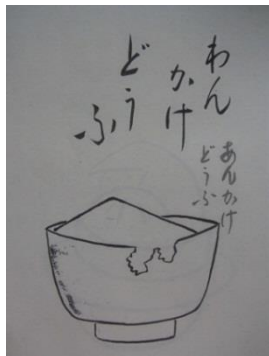 わん
かけ
どう
ふ
あんかけ
どうふ